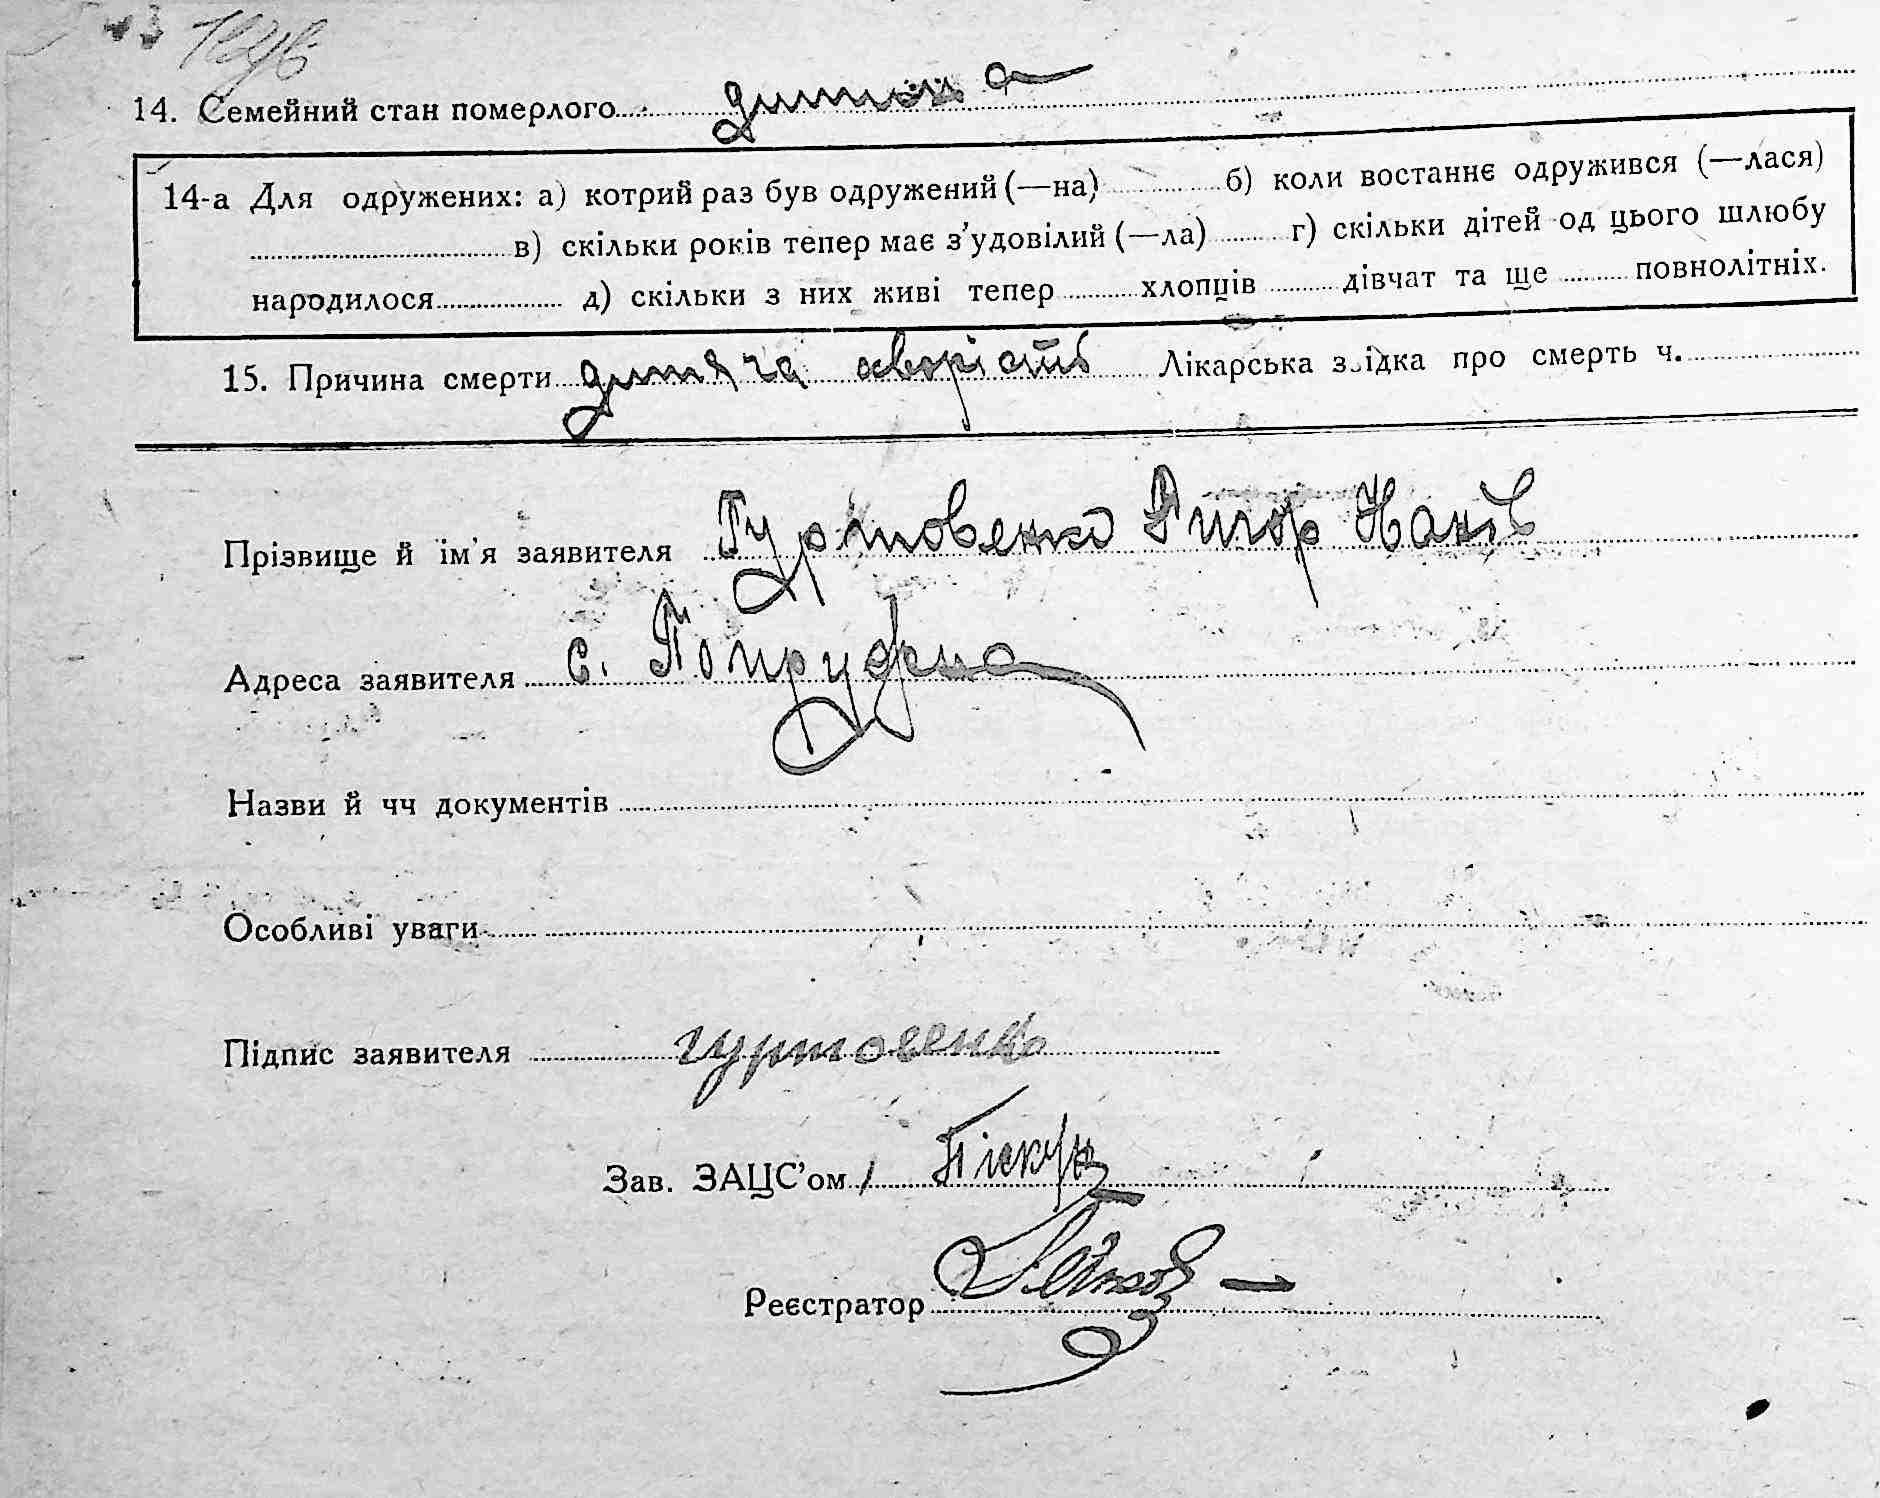 14. Семейний стан померлого дитина
14-а Для одружених: а) котрий раз був одружений (—на) б) коли востаннє одружився (—лася)
в) скільки років тепер має з’удовілий (—ла) г) скільки дітей од цього шлюбу
народилося д) скільки з них живі тепер хлопців дівчат та ще повнолітніх.
15. Причина смерти дитяча хворість Лікарська звідка про смерть ч.
Прізвище й ім’я заявителя Гуртовенко Григор Яков
Адреса заявителя с. Попружна
Назви й чч документів
Особливі уваги
Підпис заявителя гуртовенко
Зав. ЗАЦС’ом Піскун
Реєстратор